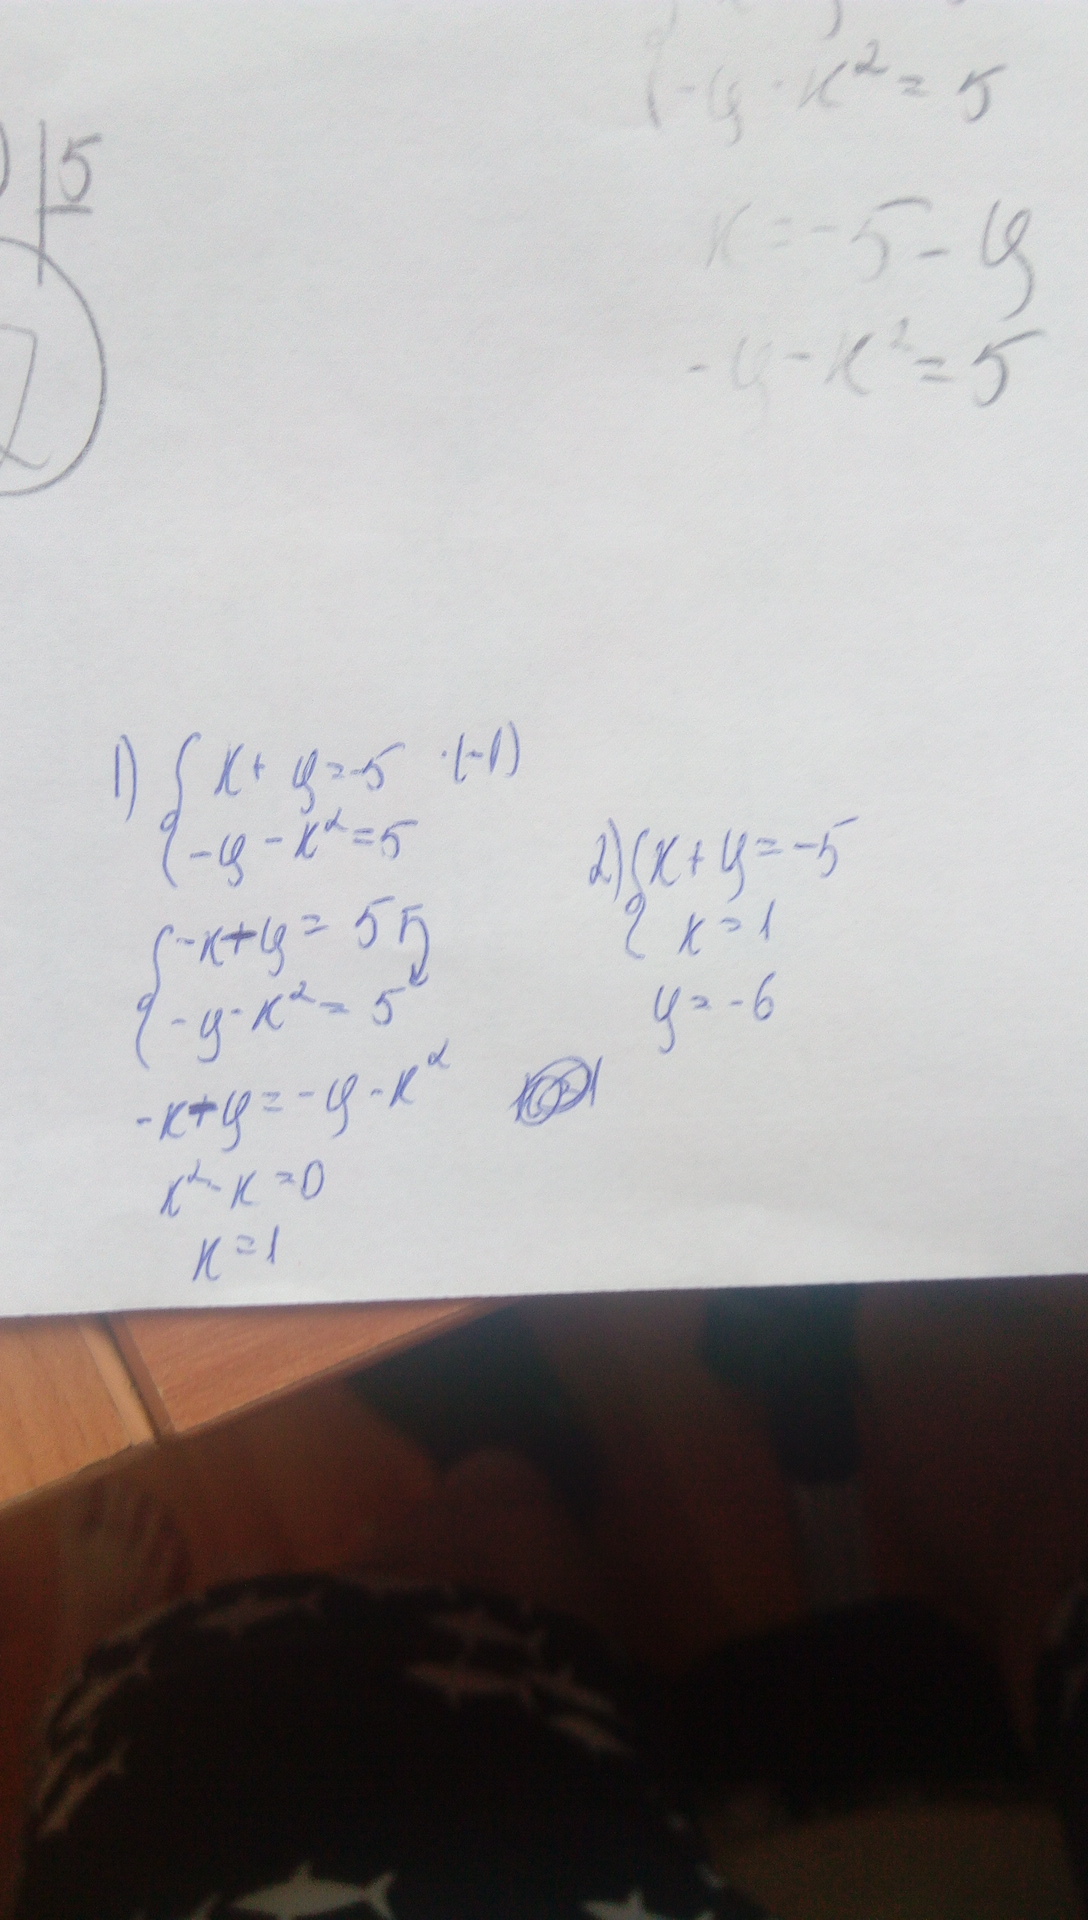 -y - x² = 5
5
x = -5 - y
-y - x² = 5
1) { x + y = -5 ·(-1)
-y - x² = 5
{ -x - y = 5
-y - x² = 5
-x - y = -y - x²
x² - x = 0
x = 1
2) { x + y = -5
x = 1
y = -6